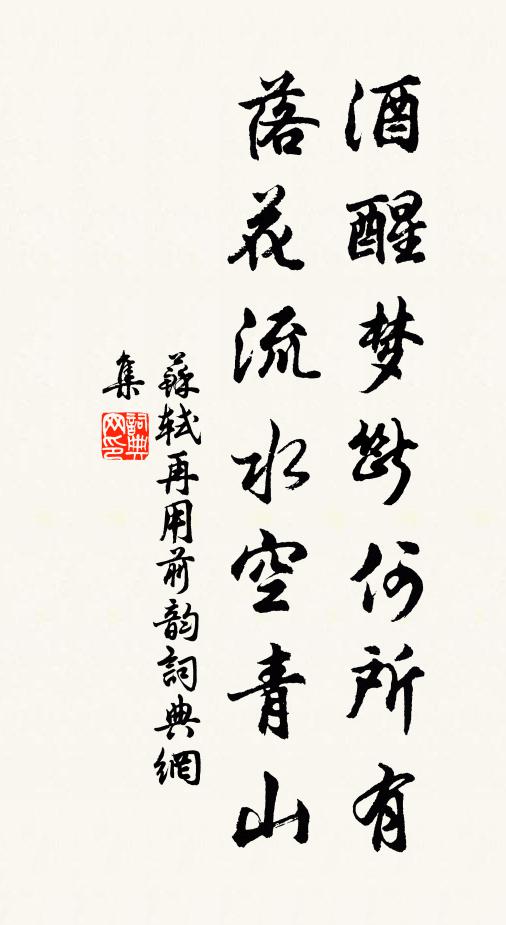 酒醒梦断何所有
落花流水空青山
蘇轼再用前韵詞典網
集
詞典网印